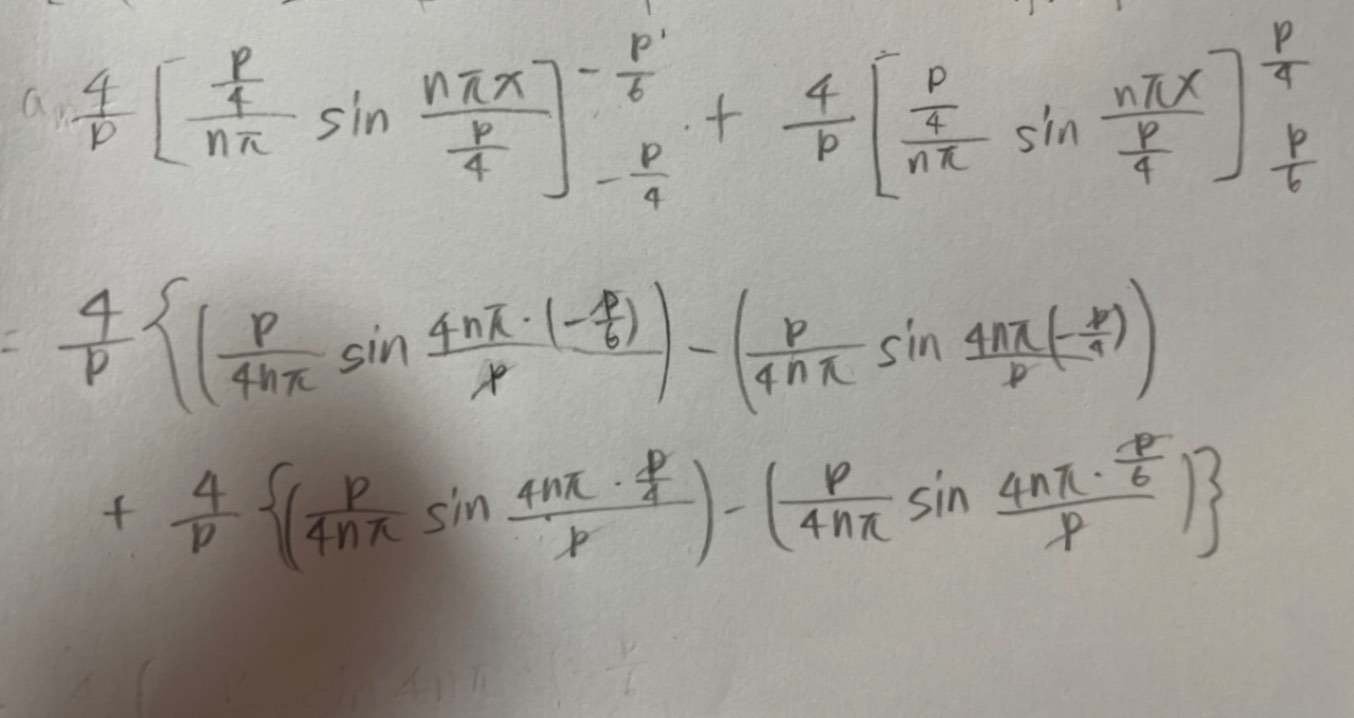 aₙ 4/p [ (p/4)/(nπ) sin (nπx)/(p/4) ]_{-p/4}^{-p/6} + 4/p [ (p/4)/(nπ) sin (nπx)/(p/4) ]_{p/6}^{p/4}
= 4/p { ( p/(4nπ) sin (4nπ·(-p/6))/p ) - ( p/(4nπ) sin (4nπ(-p/4))/p )
+ 4/p { ( p/(4nπ) sin (4nπ·p/4)/p ) - ( p/(4nπ) sin (4nπ·p/6)/p ) }